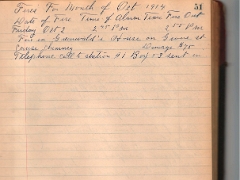 51
Fires For Month of Oct 1914
Date of Fire Time of Alarm Time Fire Out
Friday Oct 2 P.m P.m
Fire in House on
Cause chimney Damage $75
Telephone call to station #1 Box 13 sent in